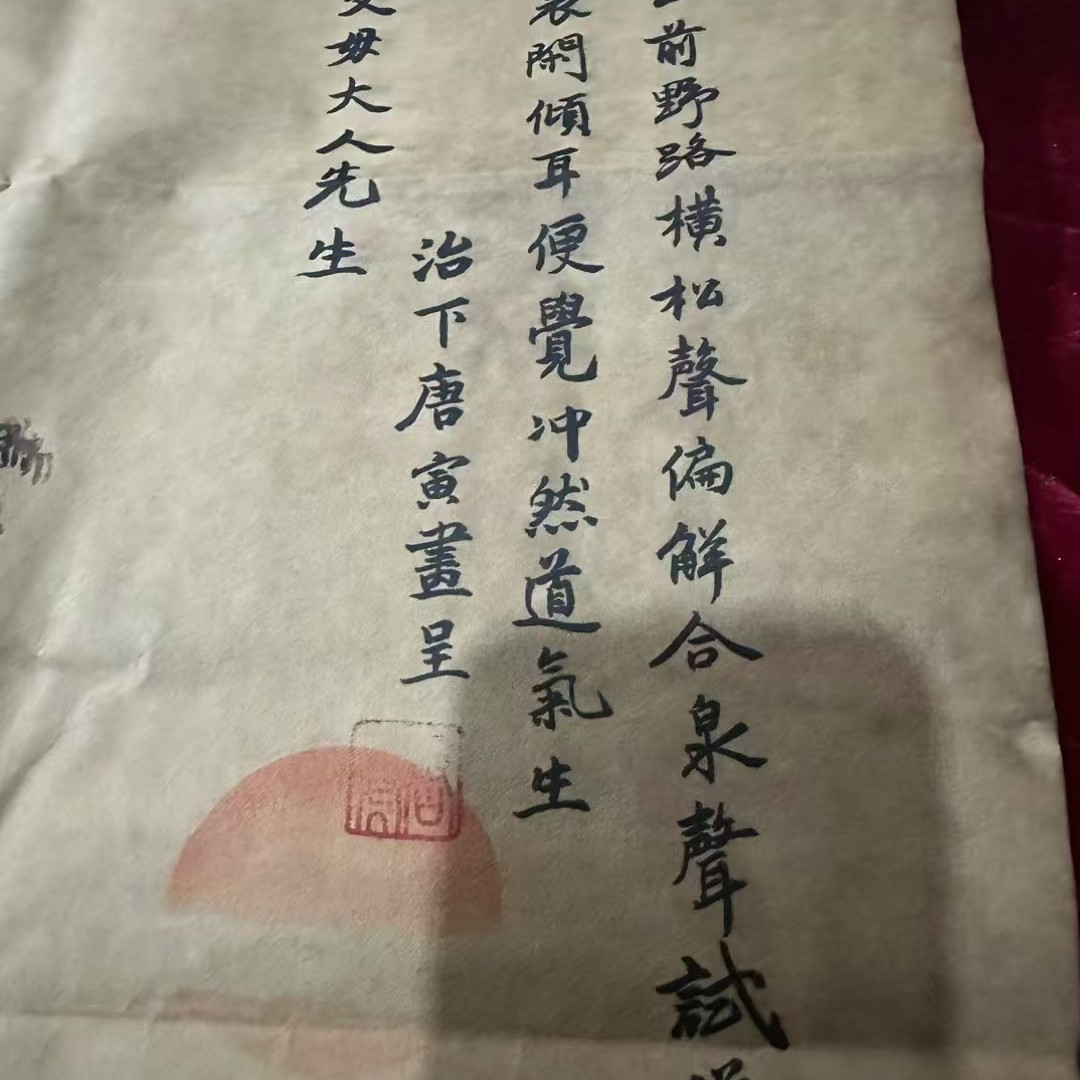 前野路橫松聲偏解合泉聲試
裝開傾耳便覺冲然道氣生
治下唐寅畫呈
父母大人先生